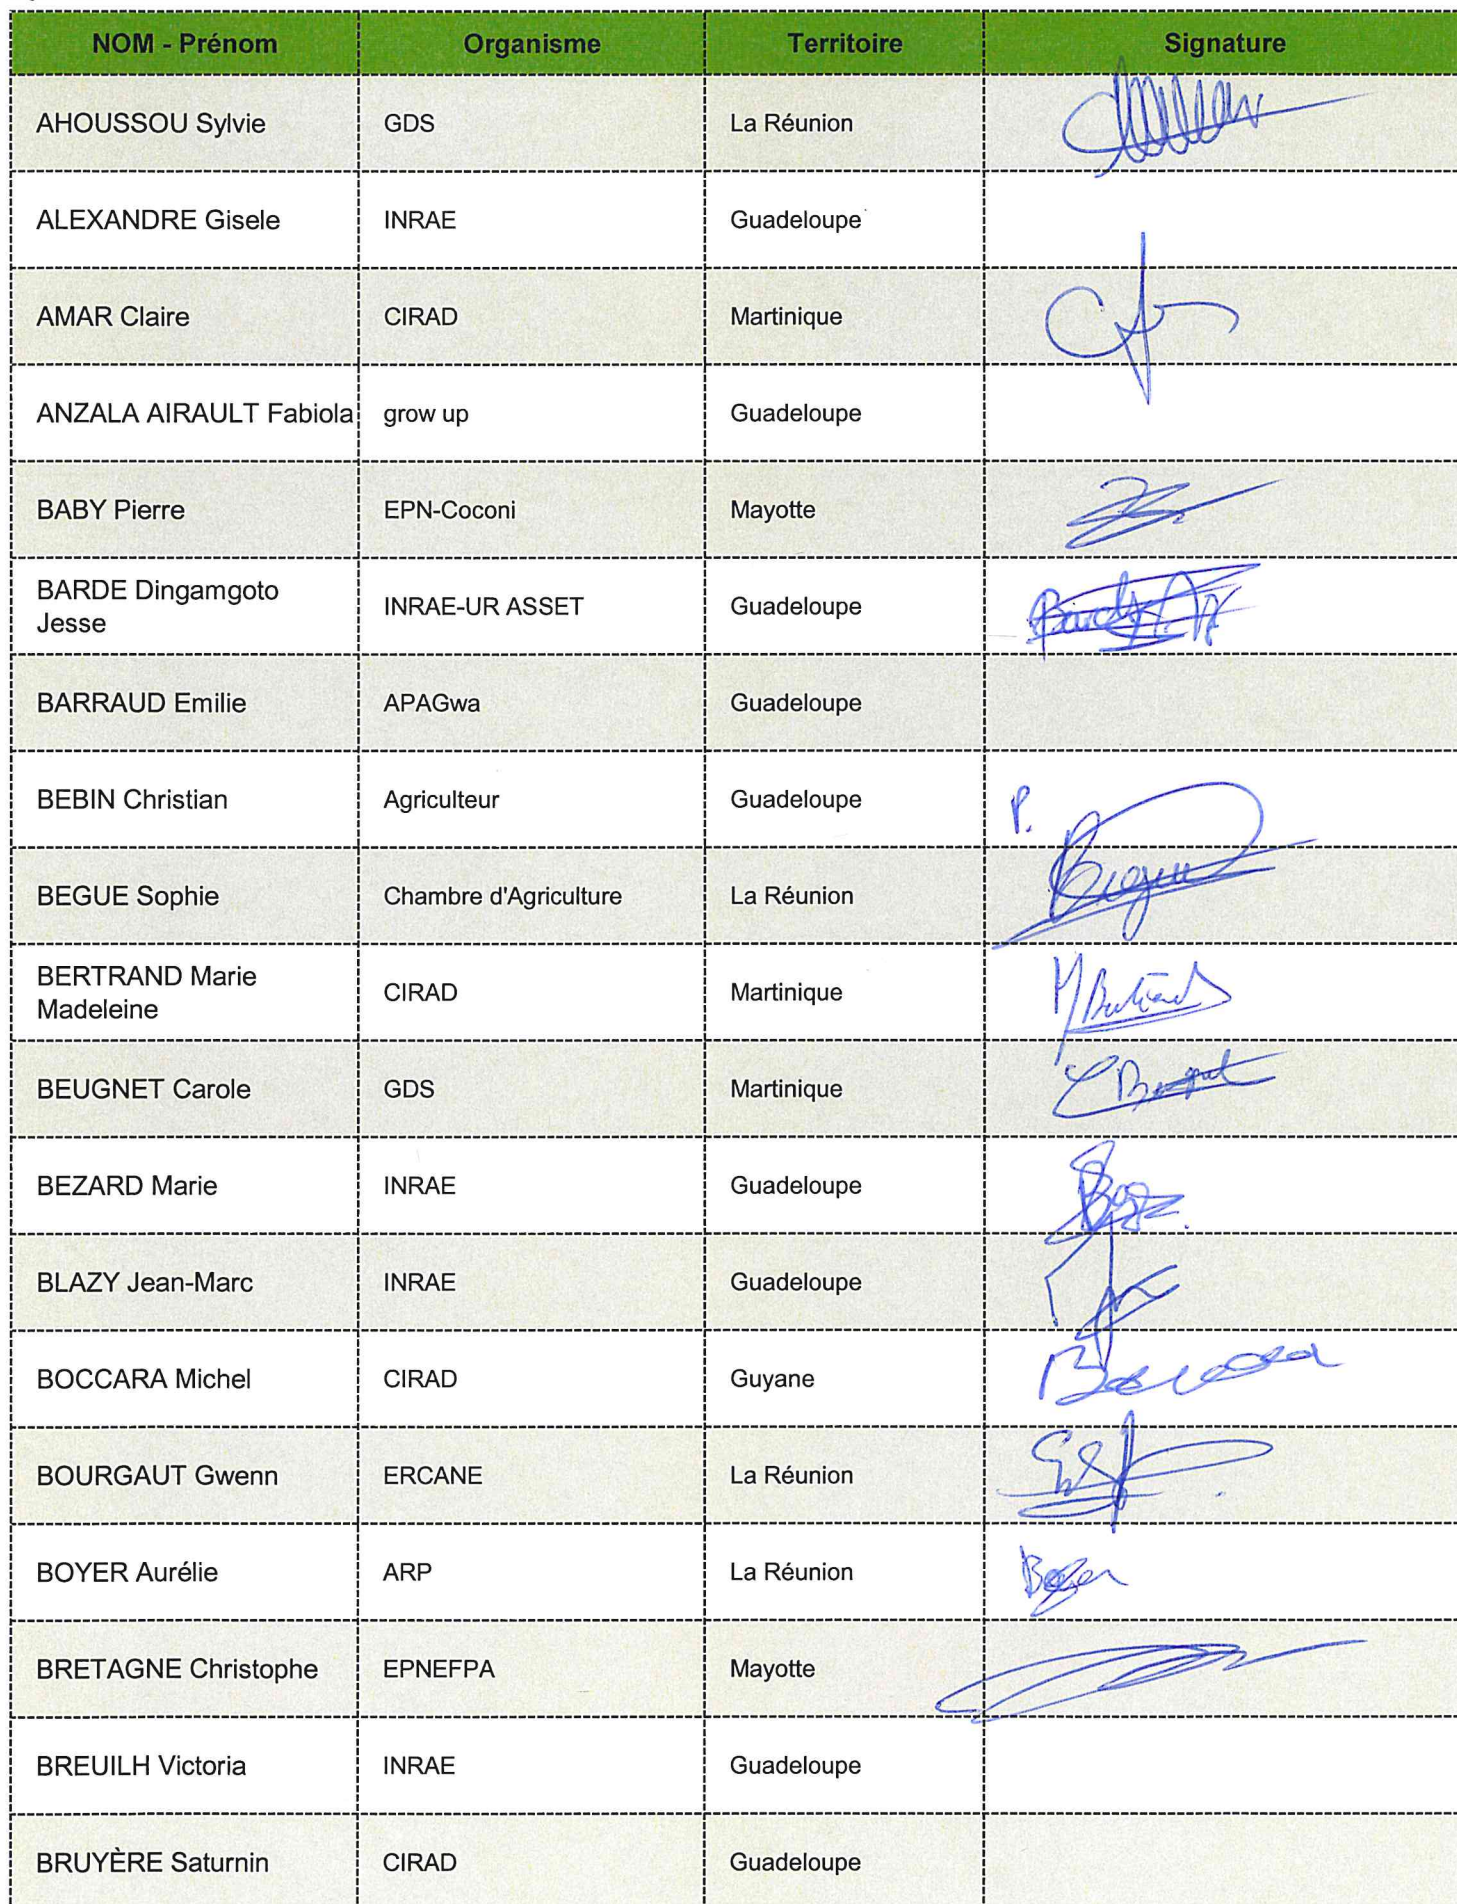 NOM - Prénom Organisme Territoire Signature
AHOUSSOU Sylvie GDS La Réunion
ALEXANDRE Gisele INRAE Guadeloupe
AMAR Claire CIRAD Martinique
ANZALA AIRAULT Fabiola grow up Guadeloupe
BABY Pierre EPN-Coconi Mayotte
BARDE Dingamgoto
Jesse INRAE-UR ASSET Guadeloupe
BARRAUD Emilie APAGwa Guadeloupe
BEBIN Christian Agriculteur Guadeloupe P.
BEGUE Sophie Chambre d'Agriculture La Réunion
BERTRAND Marie
Madeleine CIRAD Martinique
BEUGNET Carole GDS Martinique
BEZARD Marie INRAE Guadeloupe
BLAZY Jean-Marc INRAE Guadeloupe
BOCCARA Michel CIRAD Guyane
BOURGAUT Gwenn ERCANE La Réunion
BOYER Aurélie ARP La Réunion
BRETAGNE Christophe EPNEFPA Mayotte
BREUILH Victoria INRAE Guadeloupe
BRUYÈRE Saturnin CIRAD Guadeloupe